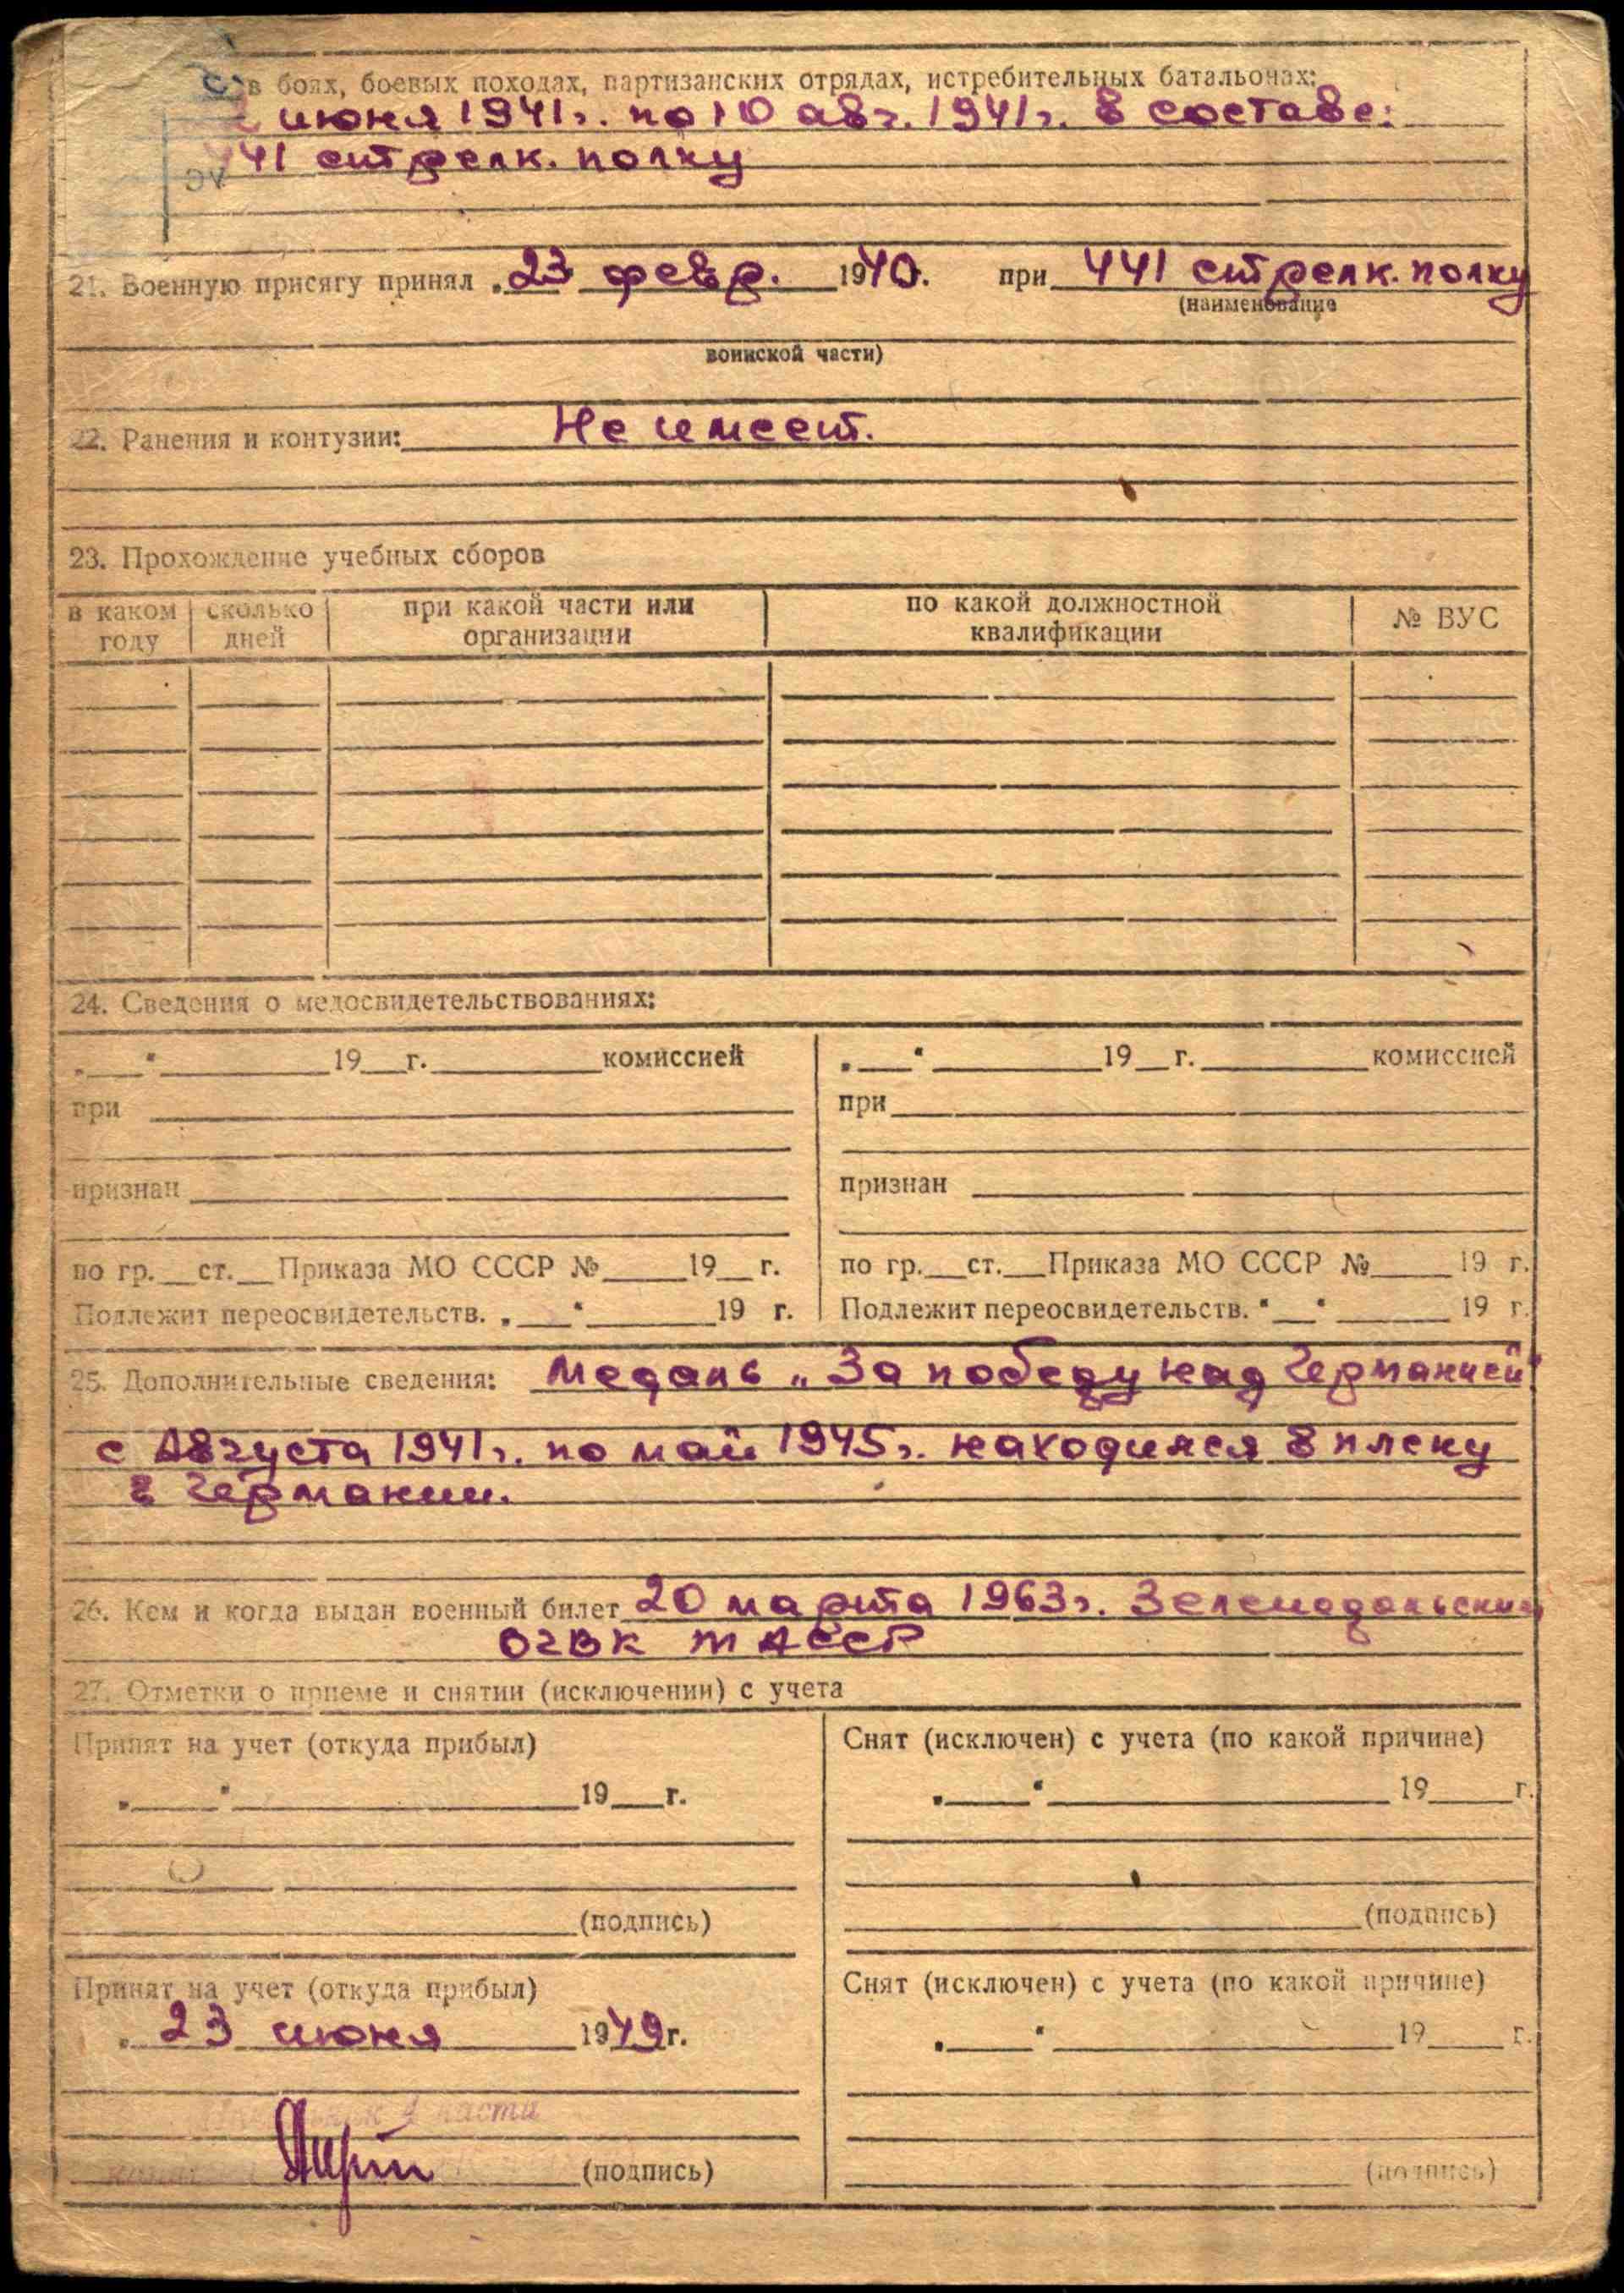 в боях, боевых походах, партизанских отрядах, истребительных батальонах:
июня 1941г. по 10 авг. 1941г. в составе:
441 стрелк. полку
21. Военную присягу принял „23 февр. 1940. при 441 стрелк. полку
(наименование
воинской части)
22. Ранения и контузии: Не имеет.
23. Прохождение учебных сборов
в каком году сколько дней при какой части или организации по какой должностной квалификации № ВУС
24. Сведения о медосвидетельствованиях:
„___" ______ 19__г. ______ комиссией „___" ______ 19__г. ______ комиссией
при при
признан признан
по гр.__ст.__Приказа МО СССР №____19__г. по гр.__ст.__Приказа МО СССР №____19 г.
Подлежит переосвидетельств. „___" ______19 г. Подлежит переосвидетельств. "__" ______ 19 г.
25. Дополнительные сведения: Медаль „За победу над Германией"
с Августа 1941г. по май 1945г. находился в плену
в Германии.
26. Кем и когда выдан военный билет 20 марта 1963г. Зеленодольским
ОГВК ТАССР
27. Отметки о приеме и снятии (исключении) с учета
Принят на учет (откуда прибыл) Снят (исключен) с учета (по какой причине)
„____" __________19___г. „____" __________ 19____г.
(подпись) (подпись)
Принят на учет (откуда прибыл) Снят (исключен) с учета (по какой причине)
„23 июня 1949г. „____" __________19____г.
части
(подпись) (подпись)